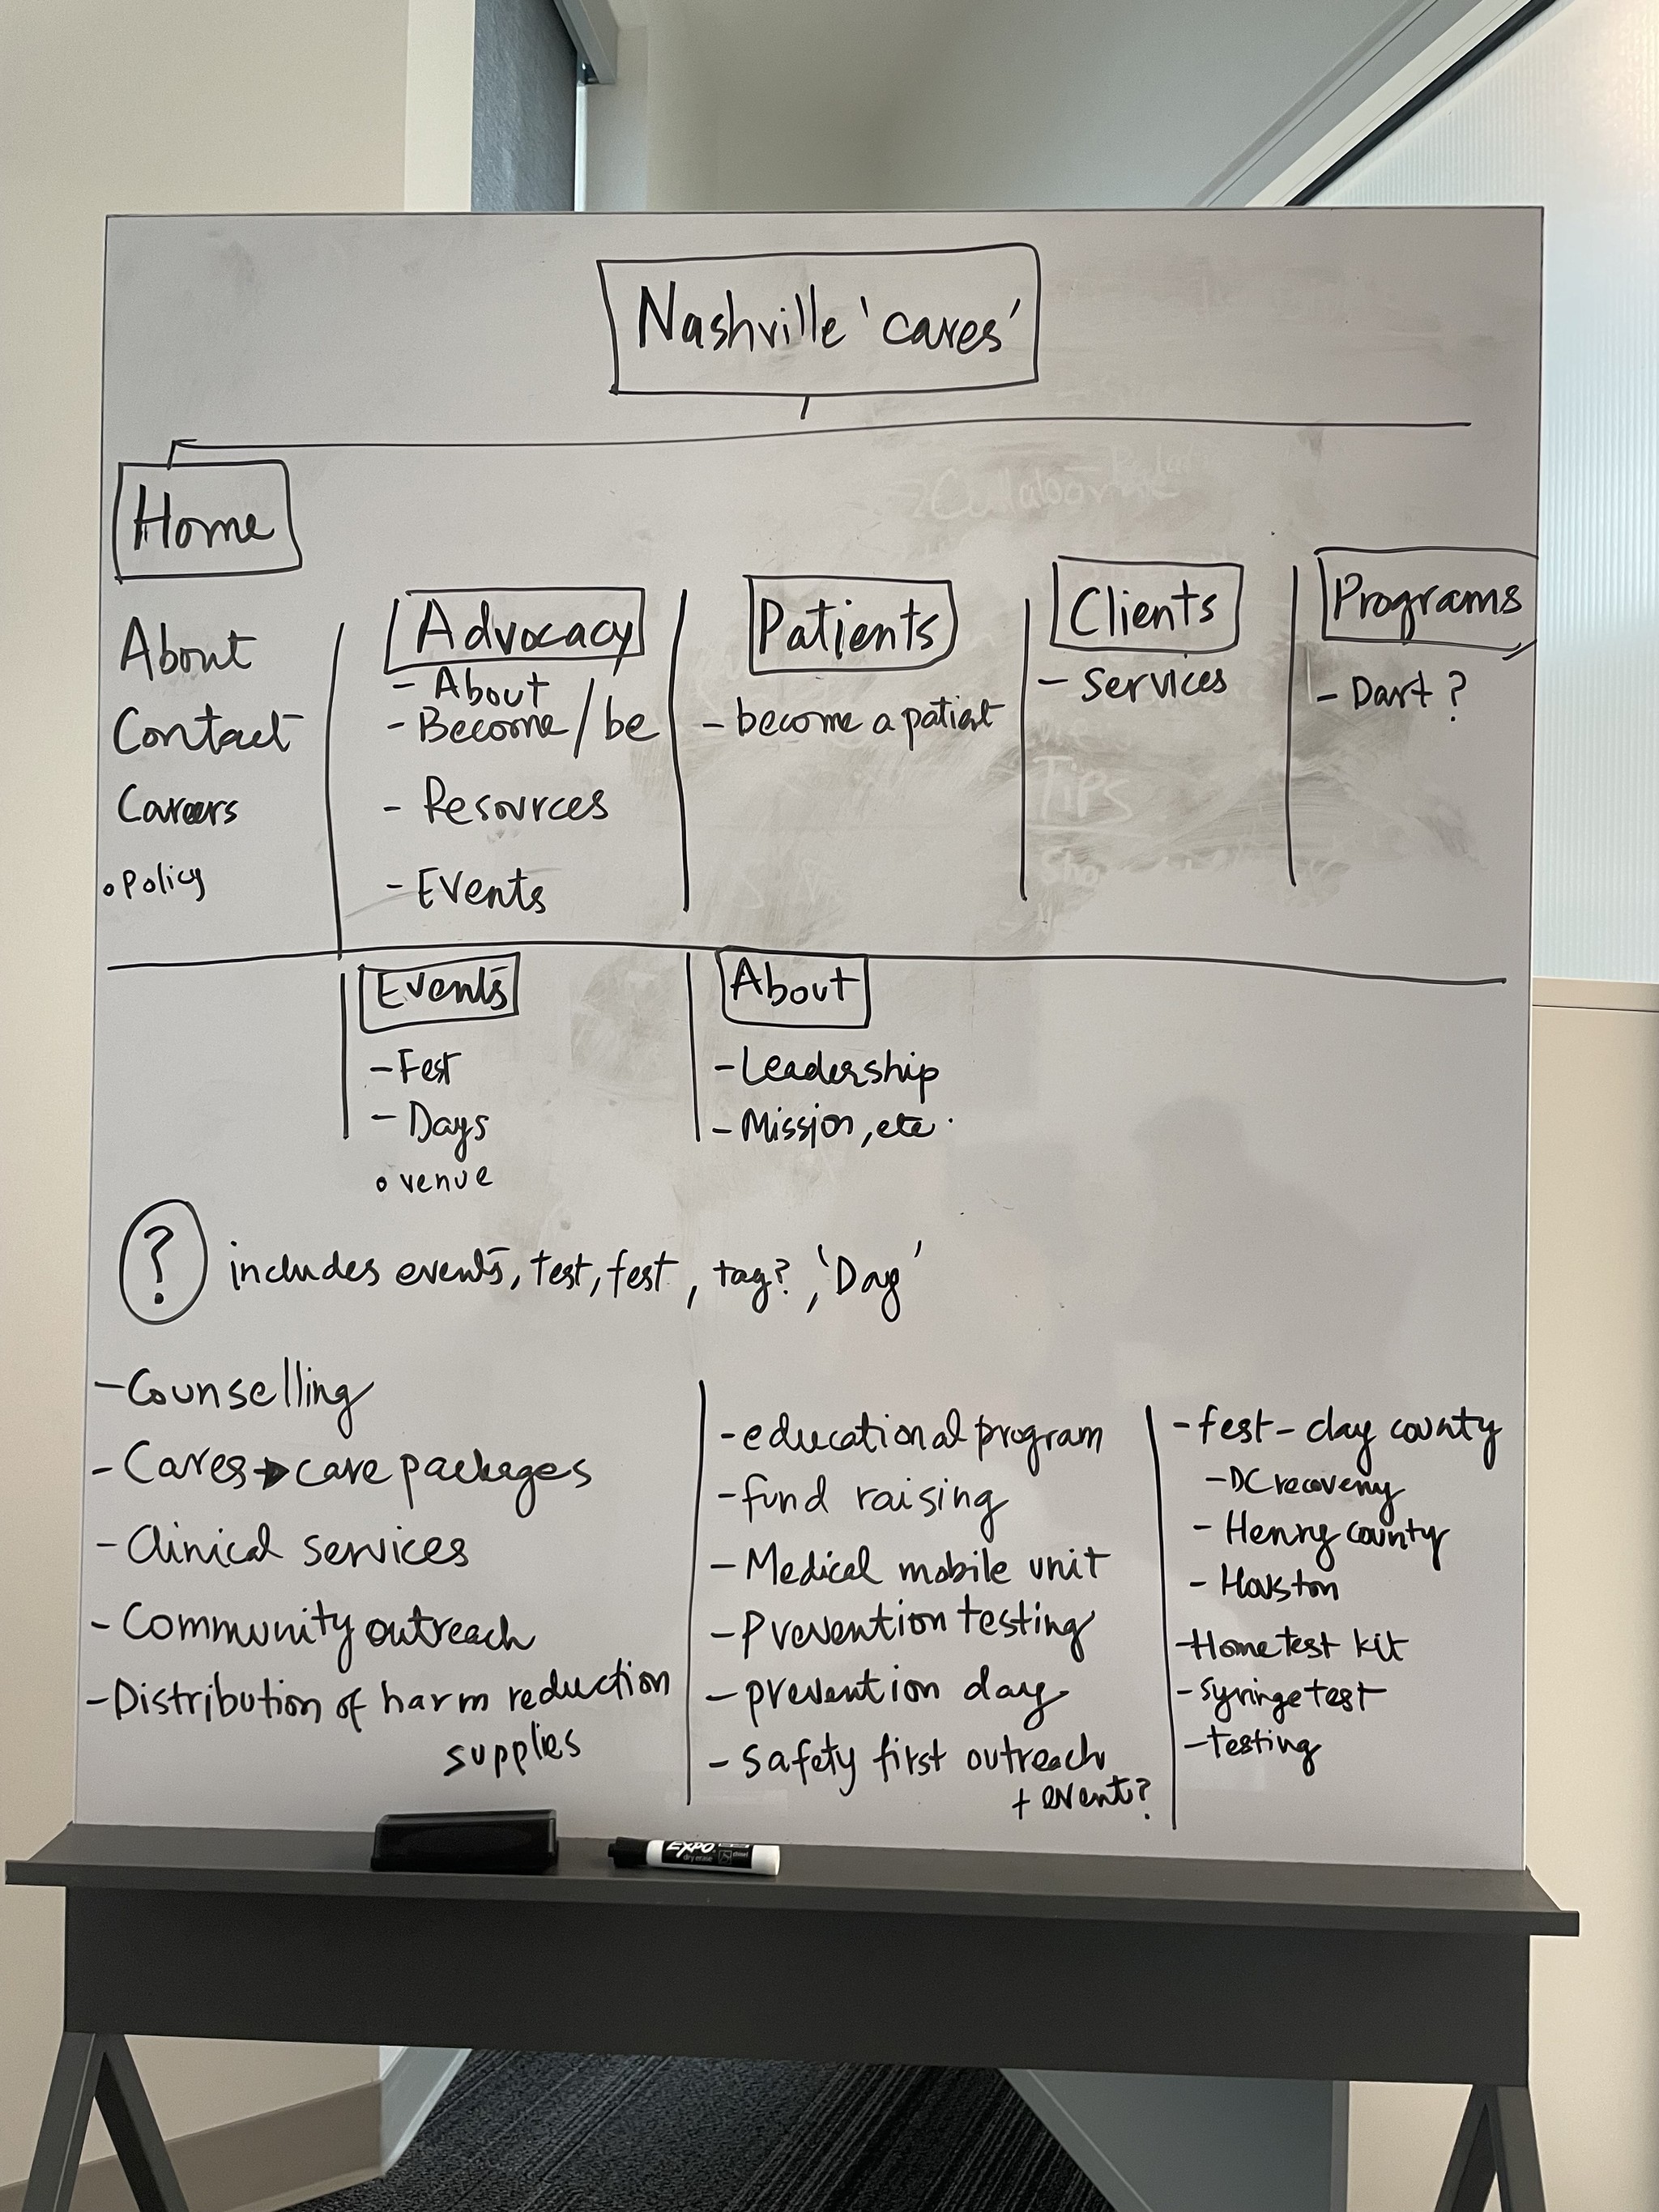 Nashville 'cares'
Home
About
Contact
Careers
• Policy
Advocacy
- About
- Become / be
- Resources
- Events
Patients
- become a patient
Clients
- Services
Programs
- Dart ?
Events
- Fest
- Days
• venue
About
- Leadership
- Mission, etc.
? includes events, test, fest, tag?, 'Day'
- Counselling
- Cares → care packages
- Clinical services
- Community outreach
- Distribution of harm reduction
supplies
- educational program
- fund raising
- Medical mobile unit
- Prevention testing
- prevention day
- Safety first outreach
+ event?
- fest - clay county
- DC recovery
- Henry county
- Houston
- Home test kit
- Syringe test
- testing
Tips
EXPO
dry erase